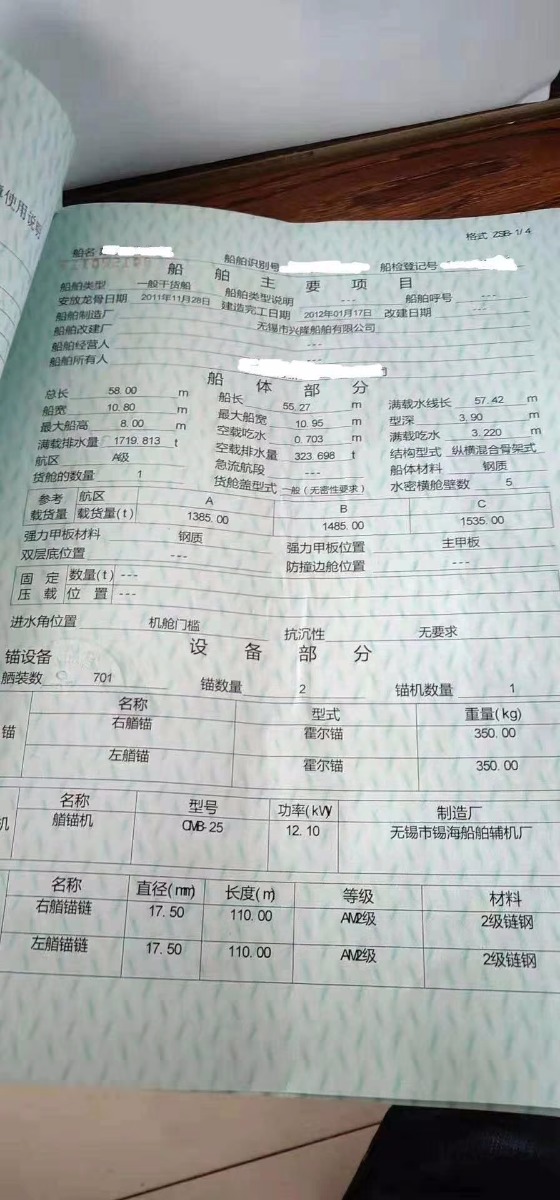 使用说明
格式 ZSB-1/4
船名 船舶识别号 船检登记号
船 舶 主 要 项 目
船舶类型 一般干货船 船舶类型说明 --- 船舶呼号 ---
安放龙骨日期 2011年11月28日 建造完工日期 2012年01月17日 改建日期 ---
船舶制造厂 无锡市兴隆船舶有限公司
船舶改建厂 ---
船舶经营人 ---
船舶所有人
船 体 部 分
总长 58.00 m 船长 55.27 m 满载水线长 57.42 m
船宽 10.80 m 最大船宽 10.95 m 型深 3.90 m
最大船高 8.00 m 空载吃水 0.703 m 满载吃水 3.220 m
满载排水量 1719.813 t 空载排水量 323.698 t 结构型式 纵横混合骨架式
航区 A级 急流航段 --- 船体材料 钢质
货舱的数量 1 货舱盖型式 一般(无密性要求) 水密横舱壁数 5
参考 航区 A B C
载货量 载货量(t) 1385.00 1485.00 1535.00
强力甲板材料 钢质 强力甲板位置 主甲板
双层底位置 --- 防撞边舱位置 ---
固 定 数量(t) ---
压 载 位 置 ---
进水角位置 机舱门槛 抗沉性 无要求
设 备 部 分
锚设备
舾装数 701 锚数量 2 锚机数量 1
名称 型式 重量(kg)
锚 右艏锚 霍尔锚 350.00
左艏锚 霍尔锚 350.00
名称 型号 功率(kW) 制造厂
机 艏锚机 CMB-25 12.10 无锡市锡海船舶辅机厂
名称 直径(mm) 长度(m) 等级 材料
右艏锚链 17.50 110.00 AM2级 2级链钢
左艏锚链 17.50 110.00 AM2级 2级链钢